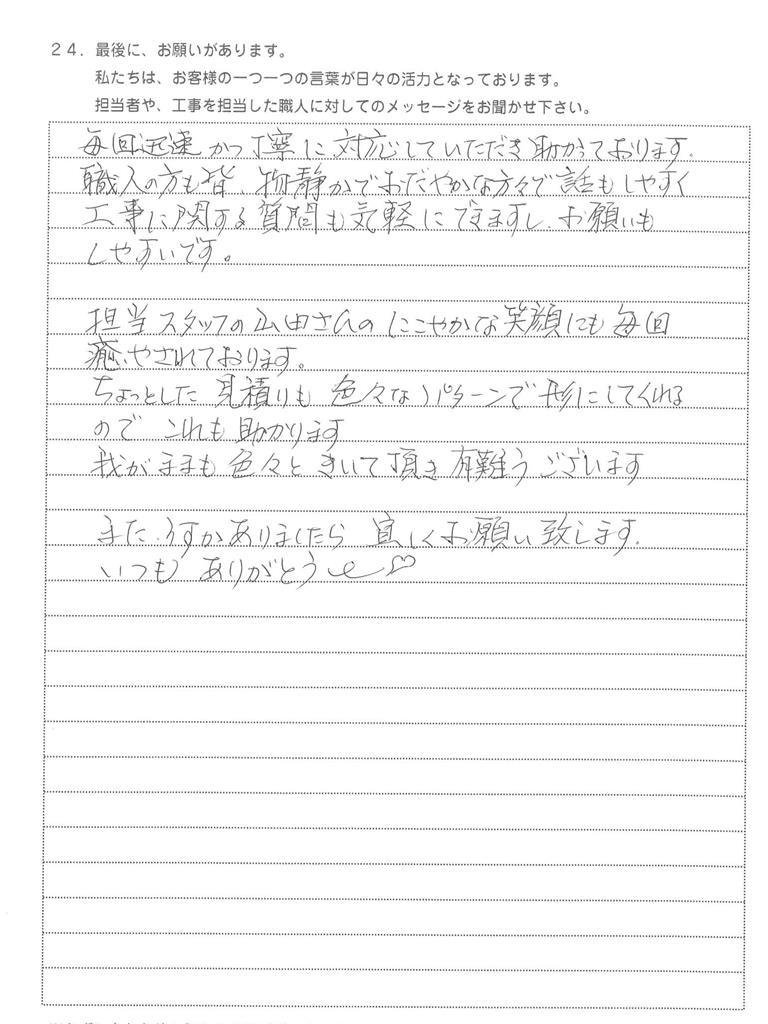 24．最後に、お願いがあります。
私たちは、お客様の一つ一つの言葉が日々の活力となっております。
担当者や、工事を担当した職人に対してのメッセージをお聞かせ下さい。
毎回迅速かつ丁寧に対応していただき助かっております。
職人の方も皆、物静かでおだやかな方々で話もしやすく
工事に関する質問も気軽にできますし、お願いも
しやすいです。
担当スタッフの山田さんのにこやかな笑顔にも毎回
癒やされております。
ちょっとした見積りも色々なパターンで形にしてくれる
ので これも助かります
我がままも色々ときいて頂き有難うございます
また、何かありましたら 宜しくお願い致します。
いつも ありがとう